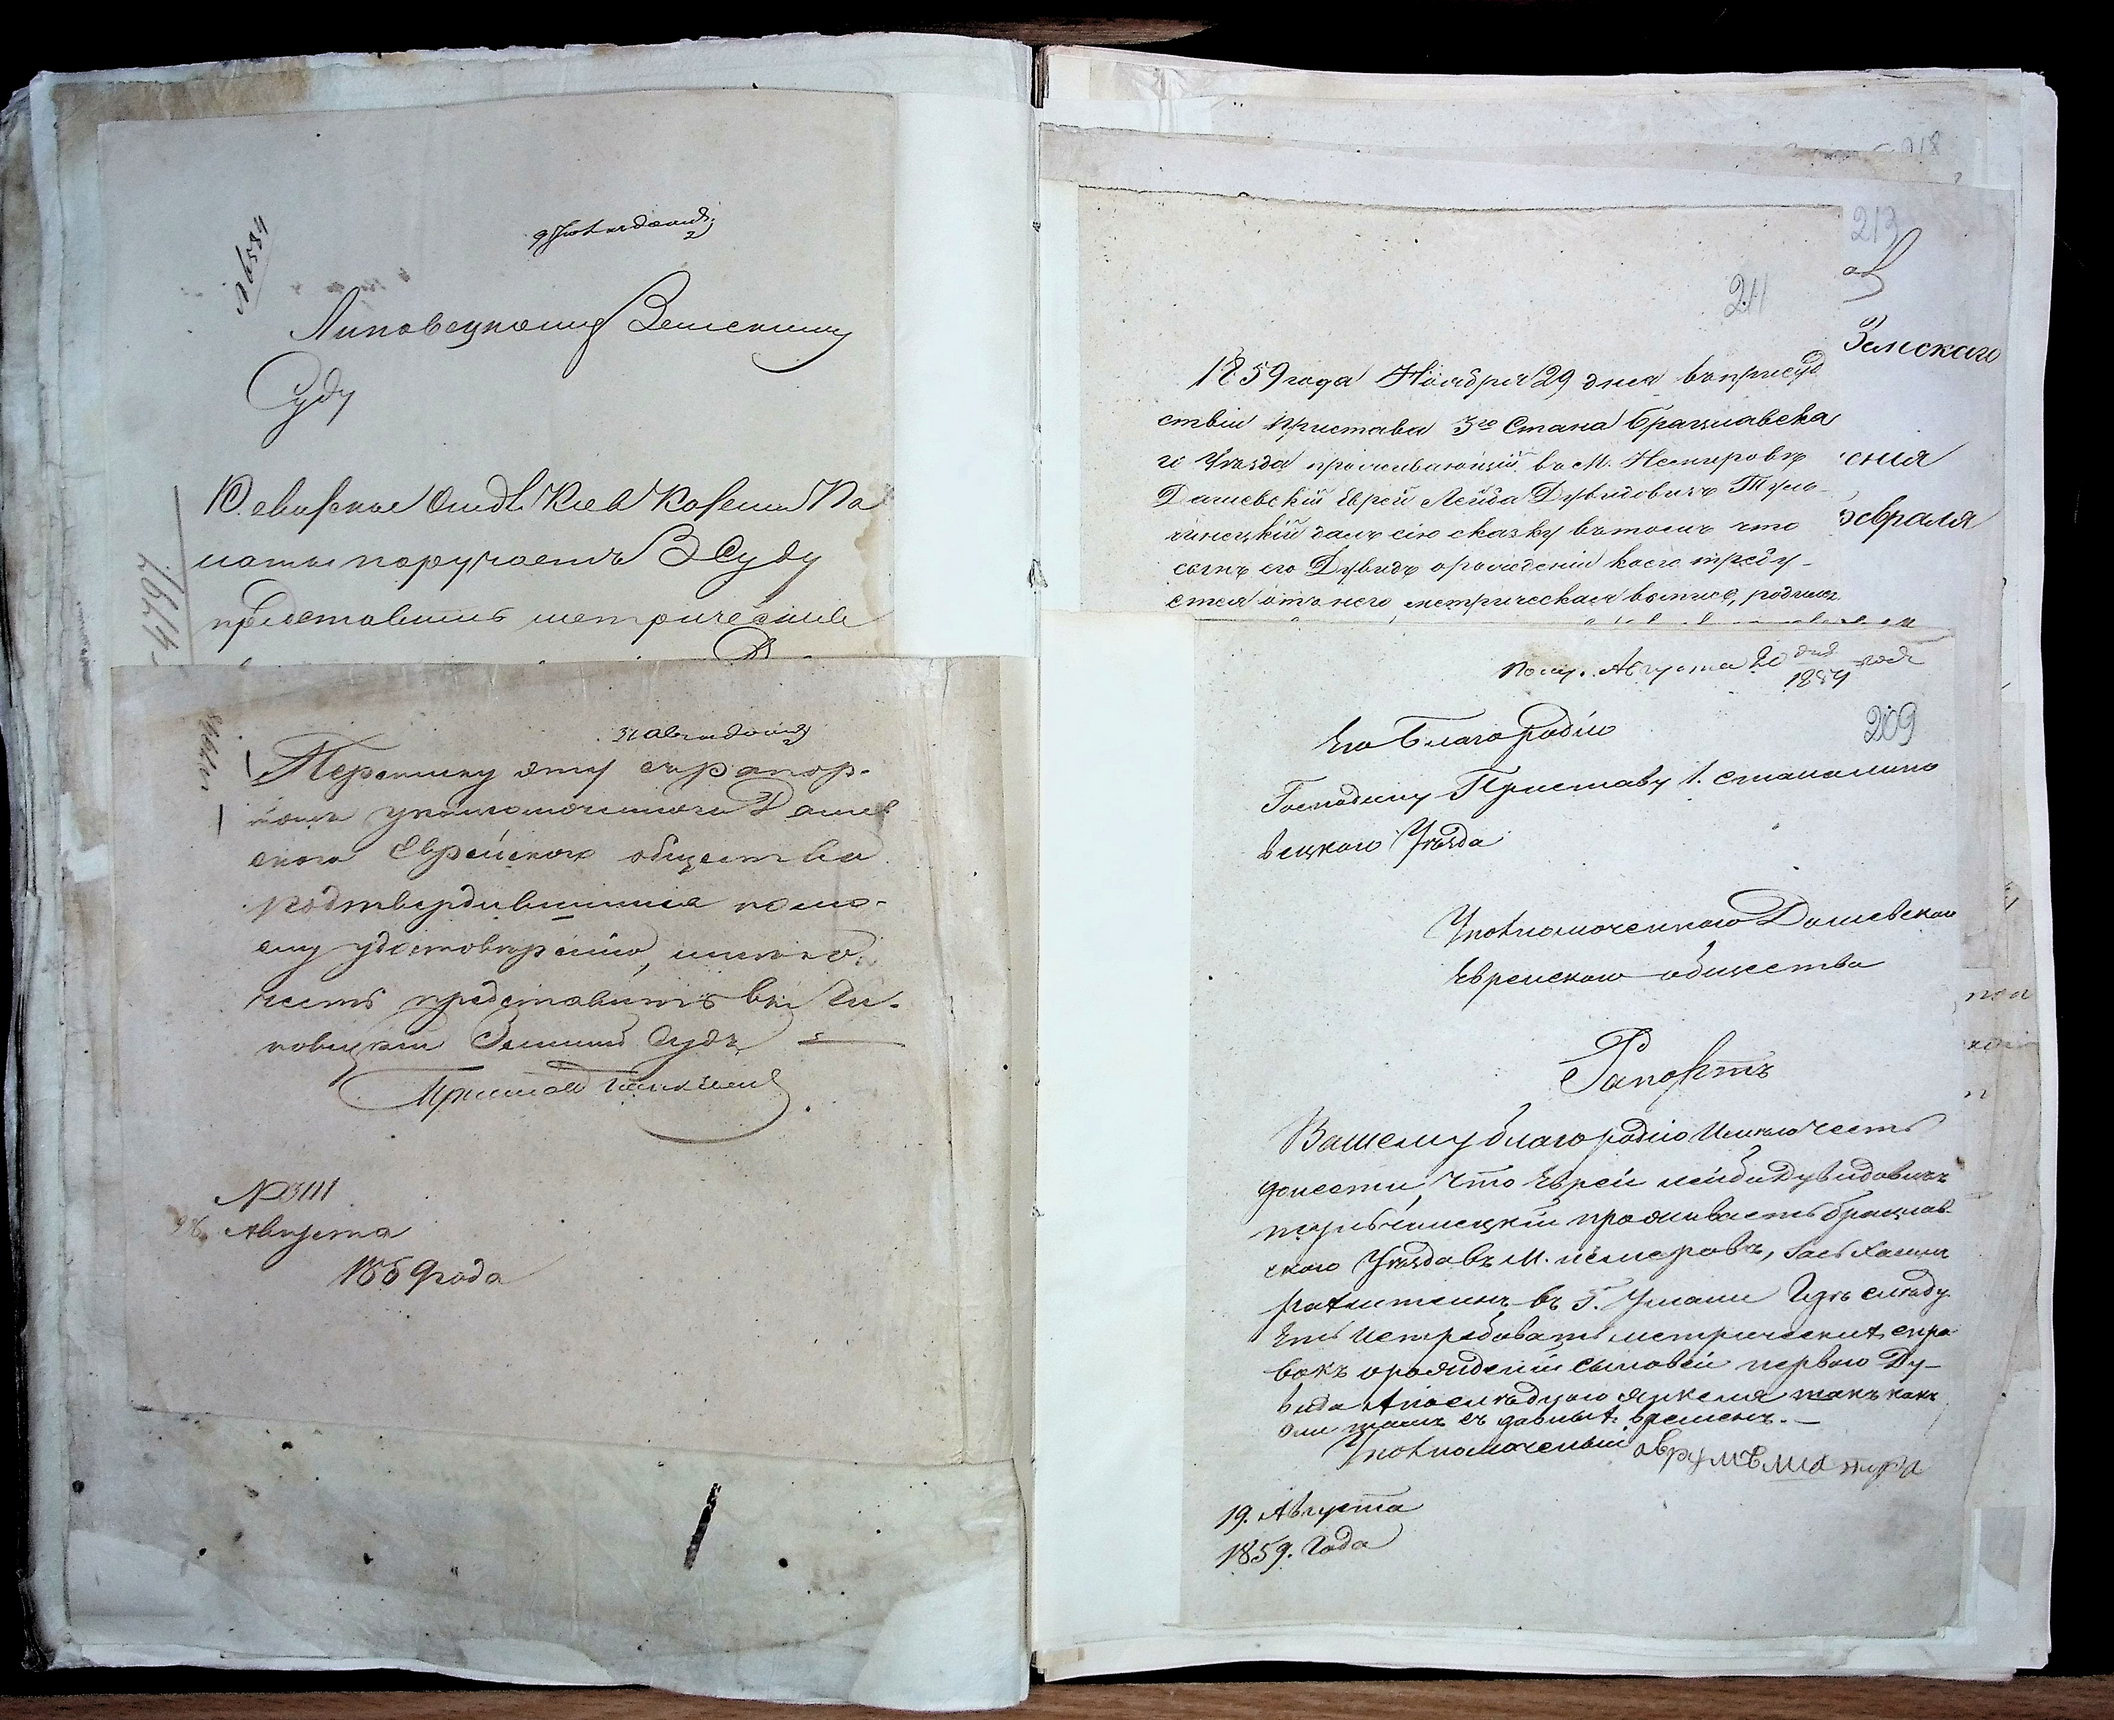 № 6584
Липовецкому Земскому
Суду
Ревизское Отдѣ. Кіев. Казенной Па
латы поручаетъ З Суду
представить метрическія
5491
Переписку эту съ рапор-
томъ уполномоченнаго Дашев
скаго Еврейскаго общества
подтвердившимся по мо-
ему удостовѣренію, имѣю
честь представить въ Ли-
повецкій Земскій Судъ
Приставъ
№ 3111
Августа
1859 года
218
213
211
Земскаго
1859 года Ноября 29 дня въ присуд
ствіи Пристава 3го Стана Брацлавска
го Уѣзда проживающій въ М. Немировѣ
Дашевскій Еврей Лейба Дувидовичъ Туль
чинецкій далъ сію сказку въ томъ что
сынъ его Дувидъ о рожденіи коего требу-
ется отъ него метрическая выпись, родился
енія
евраля
Полу. Августа 20 дня 1859 года
209
Его Благородію
Господину Приставу 1. стана Липо
вецкаго Уѣзда
Уполномоченнаго Дашевскаго
Еврейскаго общества
Рапортъ
Вашему благородію Имѣю честь
донести, что Еврей Лейба Дувидовичъ
Тульчинецкій проживаетъ Брацлав
скаго Уѣзда въ М. Немеровѣ,
въ Г. Умани
етъ истребовать метрическихъ спра
вокъ о рожденіи сыновей перваго Ду-
вида А послѣдняго Янкеля такъ какъ
они тамъ съ давныхъ временъ. —
Уполномоченный
19. Августа
1859. Года